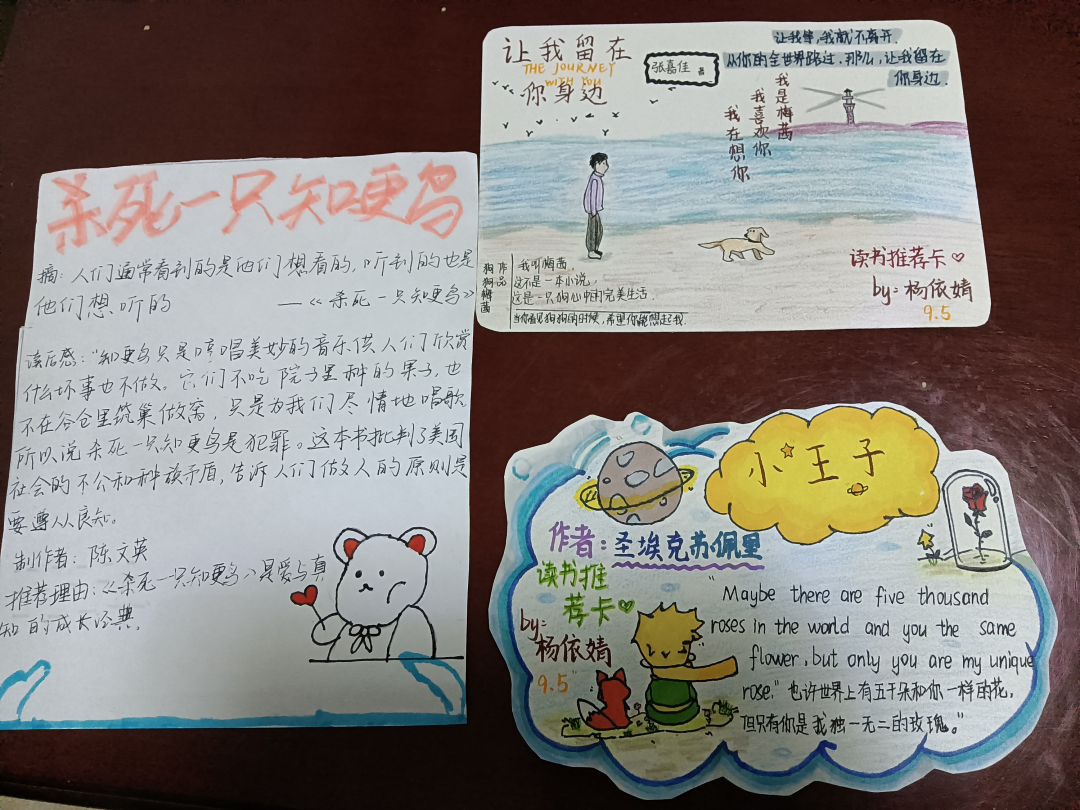 杀死一只知更鸟
摘：人们通常看到的是他们想看的，听到的也是
他们想听的 —《杀死一只知更鸟》
读后感："知更鸟只是哼唱美妙的音乐供人们欣赏
什么坏事也不做。它们不吃院子里种的果子，也
不在谷仓里筑巢做窝，只是为我们尽情地唱歌
所以说杀死一只知更鸟是犯罪。这本书批判了美国
社会的不公和种族矛盾，告诉人们做人的原则是
要遵从良知。
制作者：陈文英
推荐理由：《杀死一只知更鸟》是爱与真
知的成长经典.
让我留在
THE JOURNEY
WITH YOU
你身边
张嘉佳 著
让我等，我就不离开.
从你的全世界路过.那么，让我留在
你身边.
我是梅茜
我喜欢你
我在想你
作品
狗狗梅茜
我叫梅茜，
这不是一本小说，
这是一只狗心中的完美生活.
当你看见狗狗的时候，希望你能想起我.
读书推荐卡♡
by：杨依婧
9.5
小王子
作者：圣埃克苏佩里
读书推
荐卡♡
by：
杨依婧
9.5
"Maybe there are five thousand
roses in the world and you the same
flower, but only you are my unique
rose."也许世界上有五千朵和你一样的花，
但只有你是我独一无二的玫瑰。"